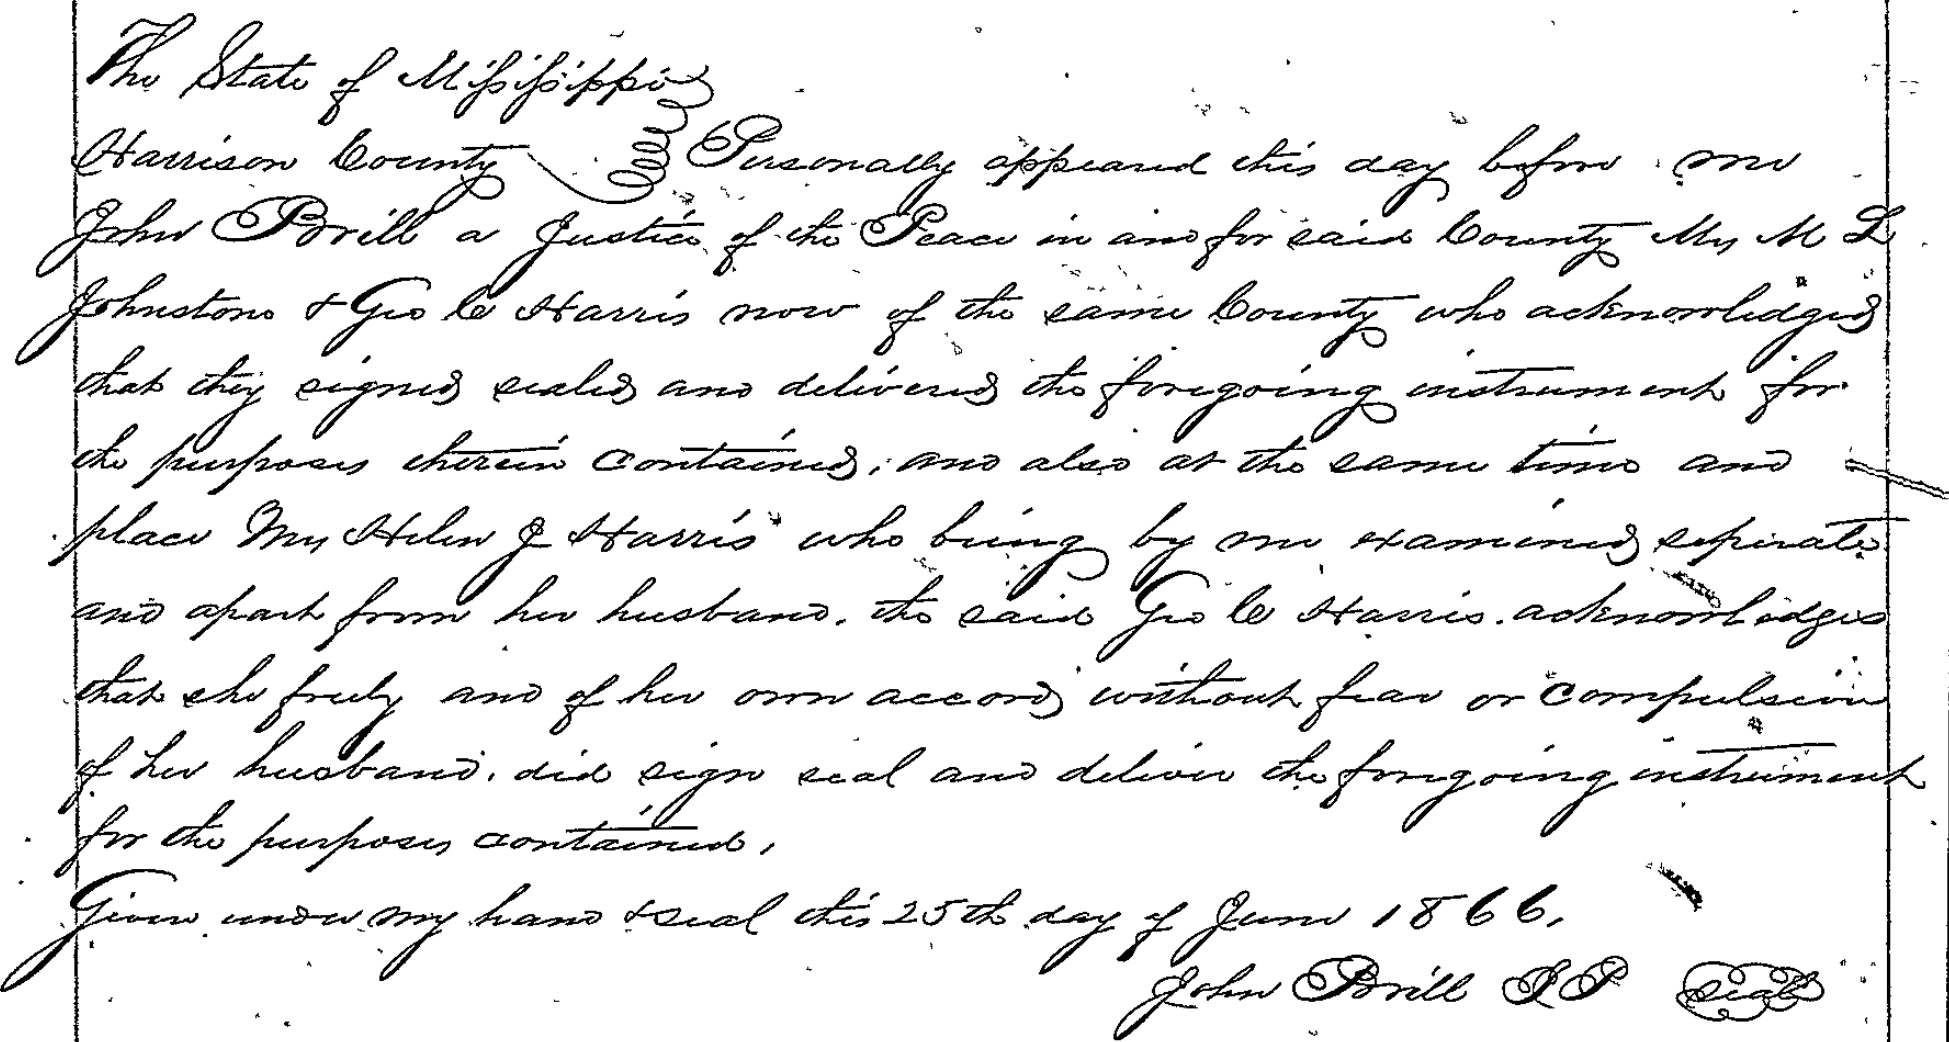 The State of Mississippi
Harrison County Personally appeared this day before me
John Brill a Justice of the Peace in and for said County Mrs M L
Johnstone & Geo C Harris now of the same County who acknowledged
that they signed sealed and delivered the foregoing instrument for
the purposes therein contained, and also at the same time and
place Mrs Helen J Harris who being by me examined seperate
and apart from her husband. the said Geo C Harris. acknowledges
that she freely and of her own accord without fear or compulsion
of her husband. did sign seal and deliver the foregoing instrument
for the purposes contained,
Given under my hand & seal this 25th day of June 1866,
John Brill J P Seal